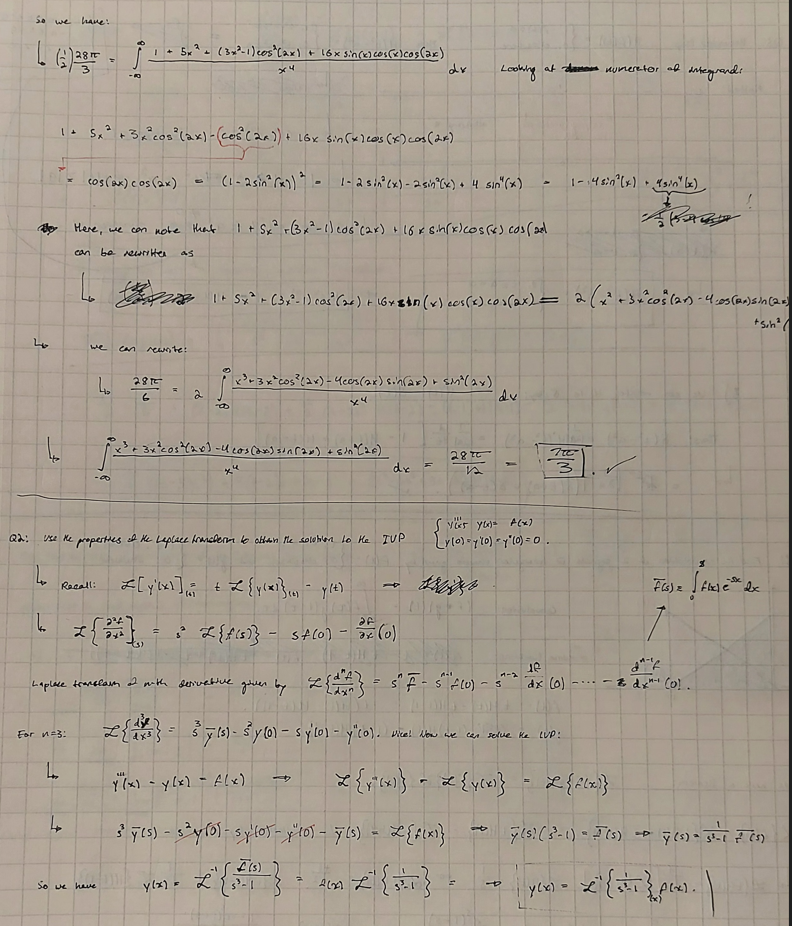 So we have:
↳ (1/2) 28π/3 = ∫_{-∞}^{∞} (1 + 5x² + (3x²-1)cos²(2x) + 16x sin(x)cos(x)cos(2x))/x⁴ dx Looking at numerator of integrand:
1 + 5x² + 3x²cos²(2x) - (cos²(2x)) + 16x sin(x)cos(x)cos(2x)
= cos(2x)cos(2x) = (1-2sin²(x))² = 1-2sin²(x)-2sin²(x)+4 sin⁴(x) = 1-4sin²(x) + 4sin⁴(x)
Here, we can note that 1 + 5x² + (3x²-1)cos²(2x) + 16x sin(x)cos(x)cos(2x)
can be rewritten as
↳ 1 + 5x² + (3x²-1)cos²(2x) + 16x sin(x)cos(x)cos(2x) = 2(x² + 3x²cos²(2x) - 4cos(2x)sin(2x)
+ sin²(
↳ we can rewrite:
↳ 28π/6 = 2 ∫_{-∞}^{∞} (x³+3x²cos²(2x)-4cos(2x)sin(2x)+sin²(2x))/x⁴ dx
↳ ∫_{-∞}^{∞} (x³+3x²cos²(2x)-4cos(2x)sin(2x)+sin²(2x))/x⁴ dx = 28π/12 = 7π/3. ✓
Q2: Use the properties of the Laplace transform to obtain the solution to the IVP { y'''(x) y(x) = f(x)
y(0)=y'(0)=y''(0)=0.
↳ Recall: ℒ[y'(x)]_(t) = t ℒ{y(x)}_(t) - y(t) → f̄(s) = ∫_0^∞ f(x)e^{-sx} dx
↳ ℒ{∂²f/∂x²}_(s) = s² ℒ{f(s)} - sf(0) - ∂f/∂x (0)
Laplace transform of nth derivative given by ℒ{dⁿf/dxⁿ} = sⁿ f̄ - s^{n-1} f(0) - s^{n-2} df/dx (0) - ⋯ - d^{n-1}f/dx^{n-1} (0).
For n=3: ℒ{d³y/dx³} = s³ ȳ(s) - s² y(0) - s y'(0) - y''(0). Nice! Now we can solve the IVP:
↳ y'''(x) - y(x) = f(x) ⇒ ℒ{y'''(x)} - ℒ{y(x)} = ℒ{f(x)}
↳ s³ ȳ(s) - s² y(0) - sy'(0) - y''(0) - ȳ(s) = ℒ{f(x)} ⇒ ȳ(s)(s³-1) = f̄(s) ⇒ ȳ(s) = 1/(s³-1) f̄(s)
So we have y(x) = ℒ⁻¹{f̄(s)/(s³-1)} = f(x) ℒ⁻¹{1/(s³-1)} = ⇒ y(x) = ℒ⁻¹{1/(s³-1)}_(x) f(x).